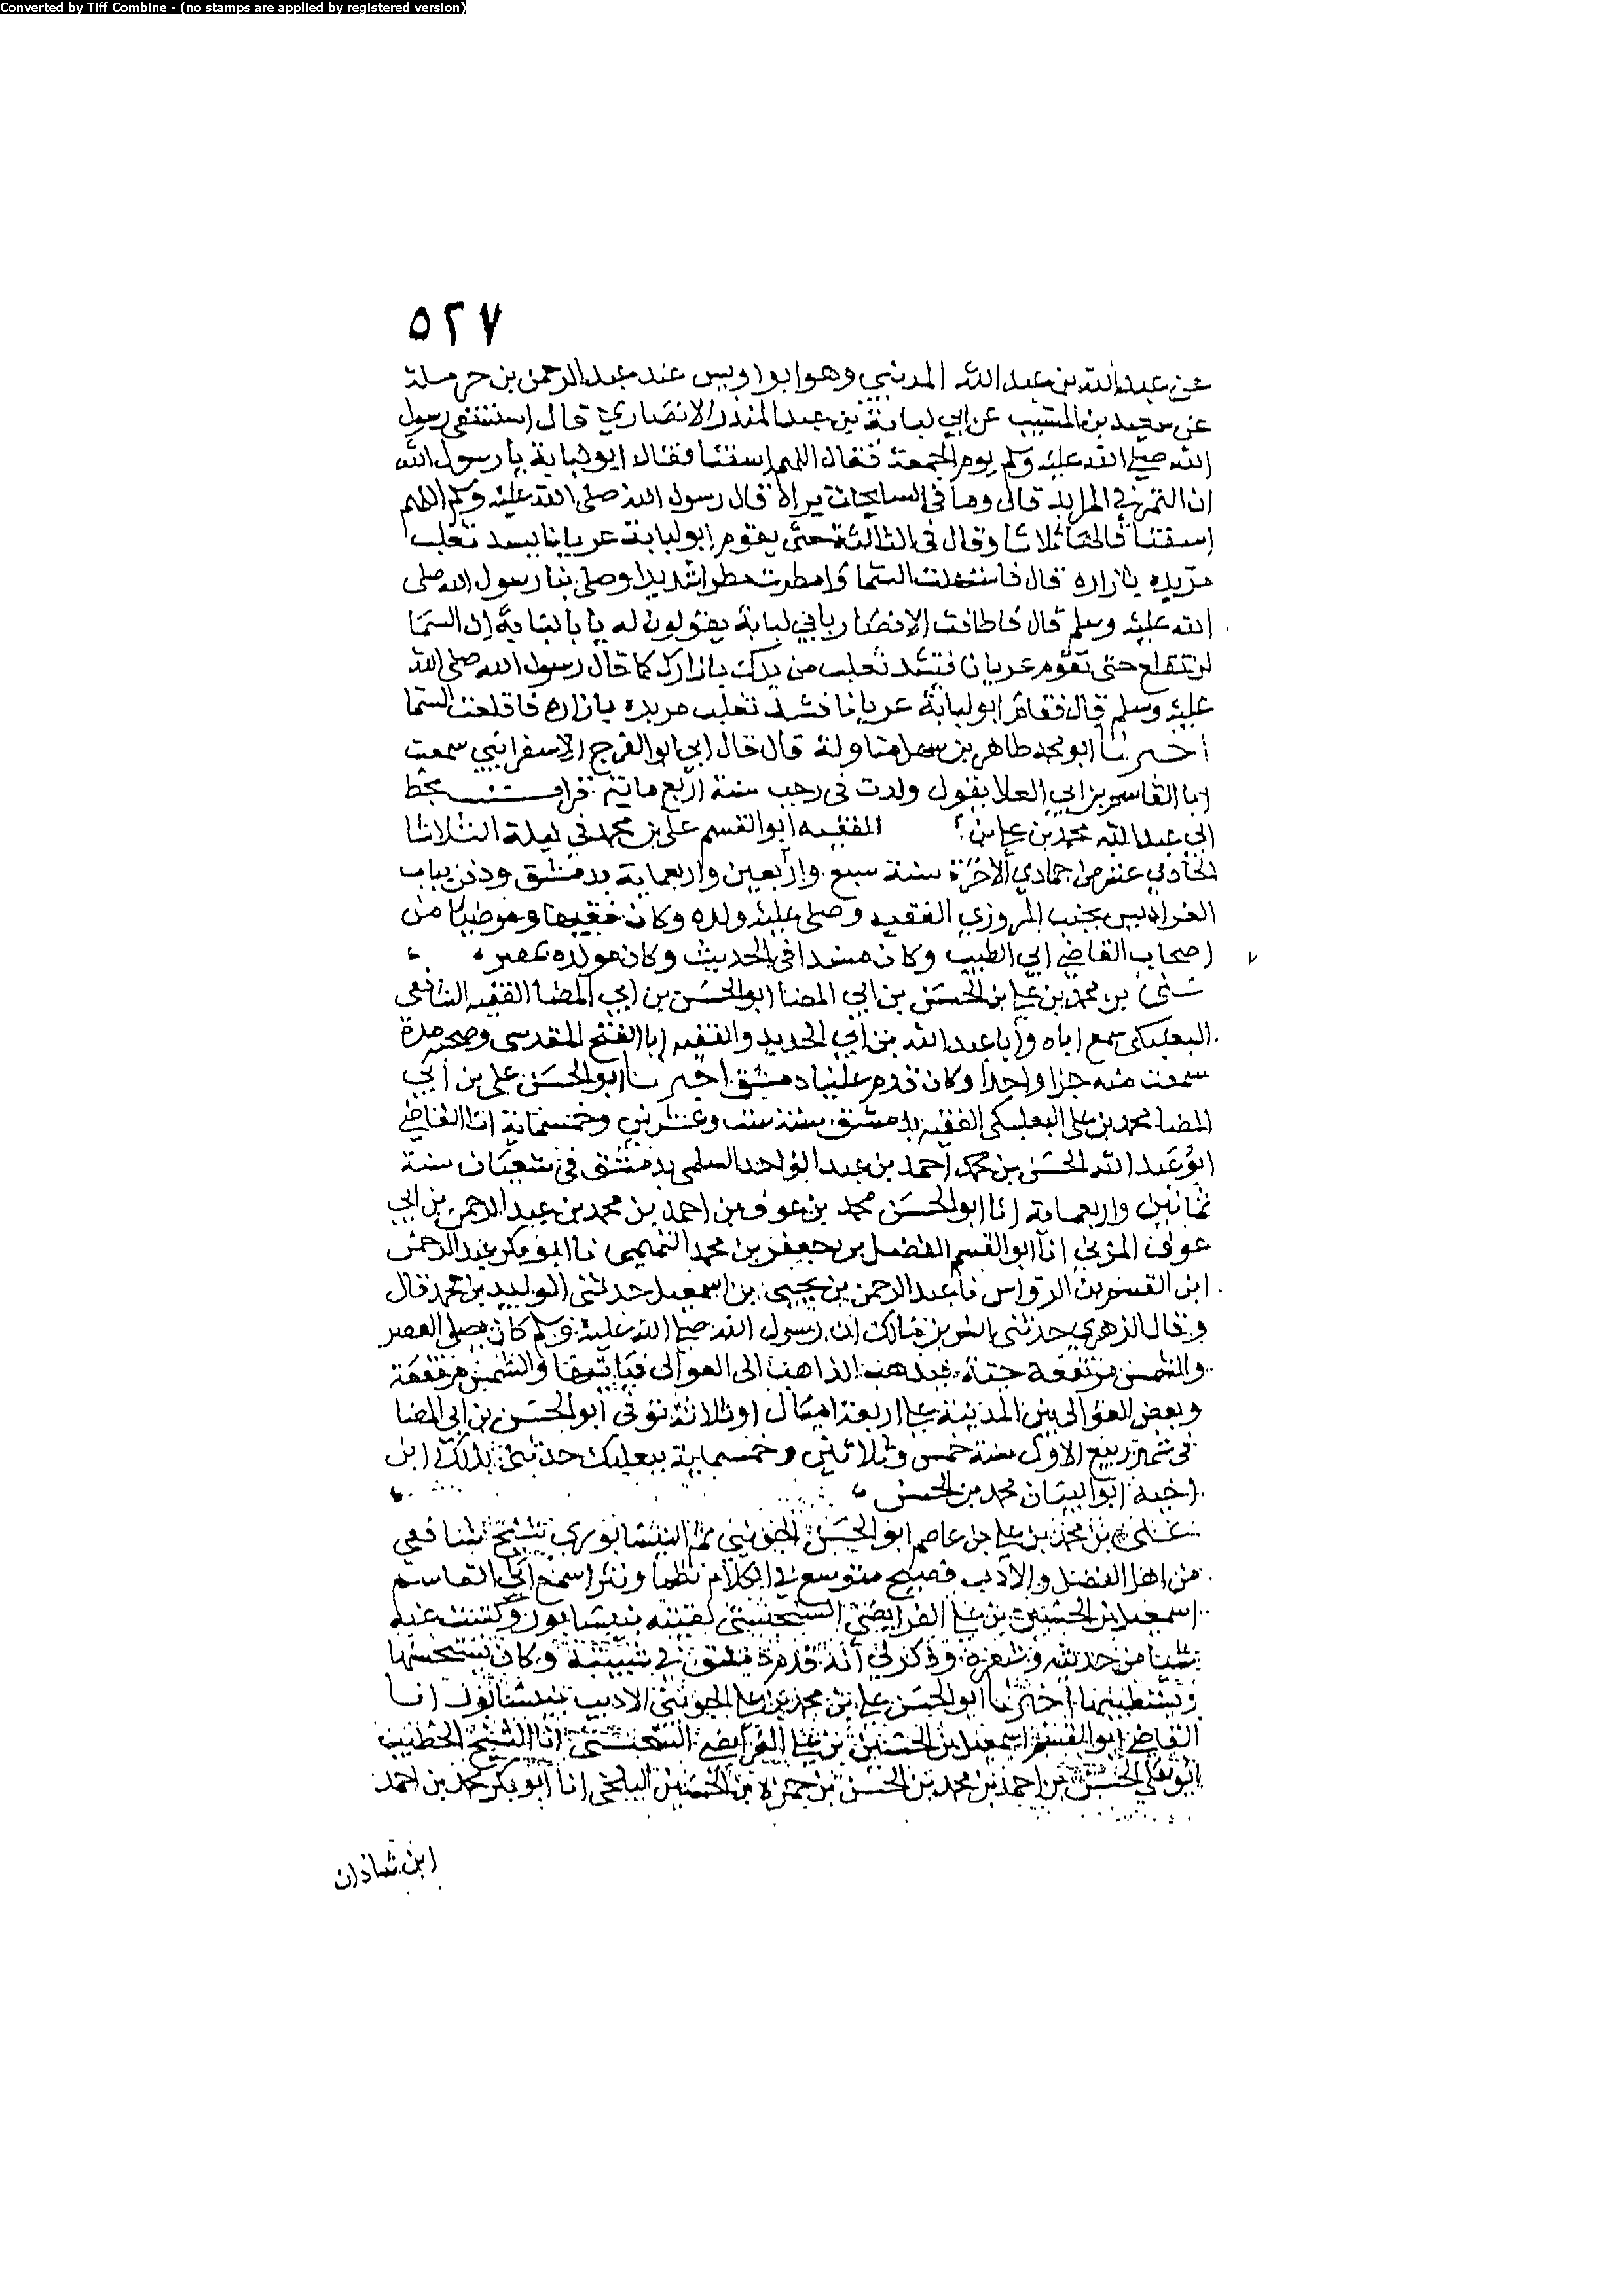 Converted by Tiff Combine - (no stamps are applied by registered version)
٥٢٧
عن عبد الله بن عبد الله المديني وهو ابو اويس عند عبد الرحمن بن حرملة
عن سعيد بن المسيب عن ابي لبابة بن عبد المنذر الانصاري قال استسقى رسول
الله صلى الله عليه وسلم يوم الجمعة فقال اللهم اسقنا فقال ابو لبابة يا رسول الله
ان التمر في المرابد قال وما في السما سحاب نراه قال رسول الله صلى الله عليه وسلم اللهم
اسقنا ثلاثا وقال في الثالثة حتى يقوم ابو لبابة عريانا يسد ثعلب
مربده بازاره قال فاستهلت السما وامطرت مطرا شديدا وصلى بنا رسول الله صلى
الله عليه وسلم قال فاطافت الانصار بابي لبابة يقولون له يا با لبابة ان السما
لن تقلع حتى تقوم عريانا فتسد ثعلب مربدك بازارك كما قال رسول الله صلى الله
عليه وسلم قال فقام ابو لبابة عريانا فسد ثعلب مربده بازاره فاقلعت السما
اخبرنا ابو محمد طاهر بن سهل مناولة قال قال ابي ابو الفرج الاسفرائيني سمعت
ابا القاسم بن ابي العلا يقول ولدت في رجب سنة اربع ماية قرات بخط
ابي عبد الله محمد بن علي الفقيه ابو القسم علي بن محمد في ليلة الثلاثا
الحادي عشر من جمادي الاخرة سنة سبع وثمانين واربعماية بدمشق ودفن بباب
الفراديس بجنب المروزي الفقيه وصلى عليه ولده وكان فقيها مرضيا من
اصحاب القاضي ابي الطيب وكان مسندا في الحديث وكان مولده بمصر
علي بن محمد بن علي بن الحسن بن ابي المضا ابو الحسن بن ابي المضا الفقيه الشافعي
البعلبكي سمع اباه وابا عبد الله بن ابي الحديد والفقيه ابا الفتح المقدسي وصحبه مدة
سمعت منه جزا واحدا وكان قدم علينا دمشق اخبرنا ابو الحسن علي بن ابي
المضا محمد بن علي البعلبكي الفقيه بدمشق سنة ست وعشرين وخمسماية انا القاضي
ابو عبد الله الحسن بن محمد احمد بن عبد الواحد السلمي بدمشق في شعبان سنة
ثمانين واربعماية انا ابو الحسن محمد بن عوف بن احمد بن محمد بن عبد الرحمن بن ابي
عوف المزني انا ابو القسم الفضل بن جعفر بن محمد التميمي نا ابو بكر عبد الرحمن
ابن القسم بن الرواس نا عبد الرحمن بن يحيى بن اسمعيل حدثني الوليد بن محمد قال
وقال الزهري حدثني انس بن مالك ان رسول الله صلى الله عليه وسلم كان يصلي العصر
والشمس مرتفعة حية فيذهب الذاهب الى العوالي فياتيها والشمس مرتفعة
وبعض العوالي من المدينة على اربعة اميال او ثلاثة توفي ابو الحسن بن ابي المضا
في شهر ربيع الاول سنة خمس وثلاثين وخمسماية ببعلبك حدثني بذلك ابن
اخيه ابو البيان محمد بن الحسن
علي بن محمد بن علي بن عاصم ابو الحسن الجويني ثم النيسابوري شيخ شافعي
من اهل الفضل والادب فصيح متوسع في الكلام نظما ونثرا سمع ابا القاسم
اسمعيل بن الحسين بن علي الفرايضي السنجبستي لقيته بنيسابور وكتبت عنه
شيئا من حديثه وشعره وذكر لي انه قدم دمشق في شبيبته وكان يستحسنها
ويستطيبها اخبرنا ابو الحسن علي بن محمد بن علي الجويني الاديب بنيسابور انا
القاضي ابو القسم اسمعيل بن الحسين بن علي الفرايضي السنجبستي انا الشيخ الخطيب
ابو علي الحسن بن احمد بن محمد بن الحسن بن حمزة بن الحسين البلخي انا ابو بكر محمد بن احمد
ابن شاذان